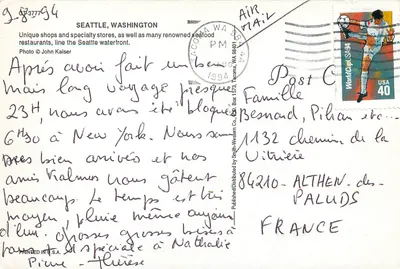 9-8-94
SEATTLE, WASHINGTON
Unique shops and specialty stores, as well as many renowned seafood
restaurants, line the Seattle waterfront.
Photo © John Kaiser
AIR
MAIL
TACOMA WA
1994
World Cup USA 94
USA
40
Après avoir fait un beau
mais long voyage presque
23H, nous avons été bloqués
6H30 à New York. Nous sommes
bien arrivés et nos
amis Vialmos nous gâtent
beaucoup. Le temps est très
moyen, pluie même aujour
d'hui. Grosses grosses bises à
tous et spéciale à Nathalie
Pierre - Thérèse
Post C
Famille
Besnard, Pihan etc...
1132 chemin de la
Vitrière
84210 - ALTHEN-des-
PALUDS
FRANCE